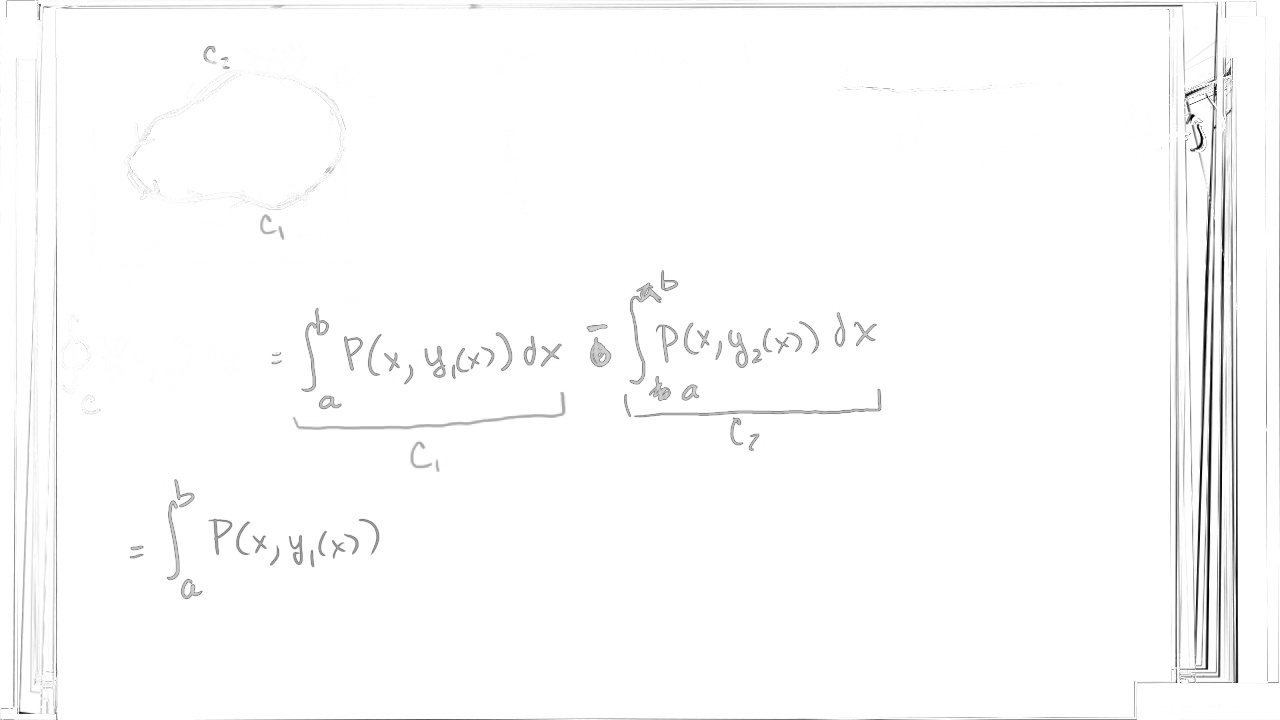 C₂
C₁
= ∫ₐᵇ P(x, y₁(x)) dx - ∫ₐᵇ P(x, y₂(x)) dx
C₁ C₂
= ∫ₐᵇ P(x, y₁(x))